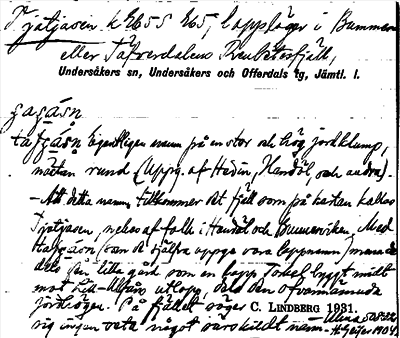 Tjatjasen k 2655 265, lappläger i Bummer
eller Täfverdalens Renbetesfjäll,
Undersåkers sn, Undersåkers och Offerdals tg, Jämtl. l.
Egentligen namn på en stor och hög jordklump,
nästan rund (Uppg. af Hedin, Handöl, och andra).
- Att detta namn tillkommer det fjäll som på kartan kallas
Tjatjasen, nekas af folk i Handöl och Bunnerviken. Med
(som de själfva uppge vara lappnamn) mena de
dels den lilla gård som en lapp Tokel byggt midt
mot utlopp, dels den ofvannämnda
jordhögen. På fjället säger C. LINDBERG 1931.
sig ingen veta något särskildt namn. - H. Geijer 1904.